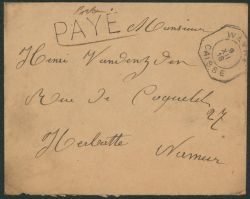 PAYÉ Monsieur
Henri Vandenzyden
Rue de Coquelet
27
Herbatte Namur
CAISSE